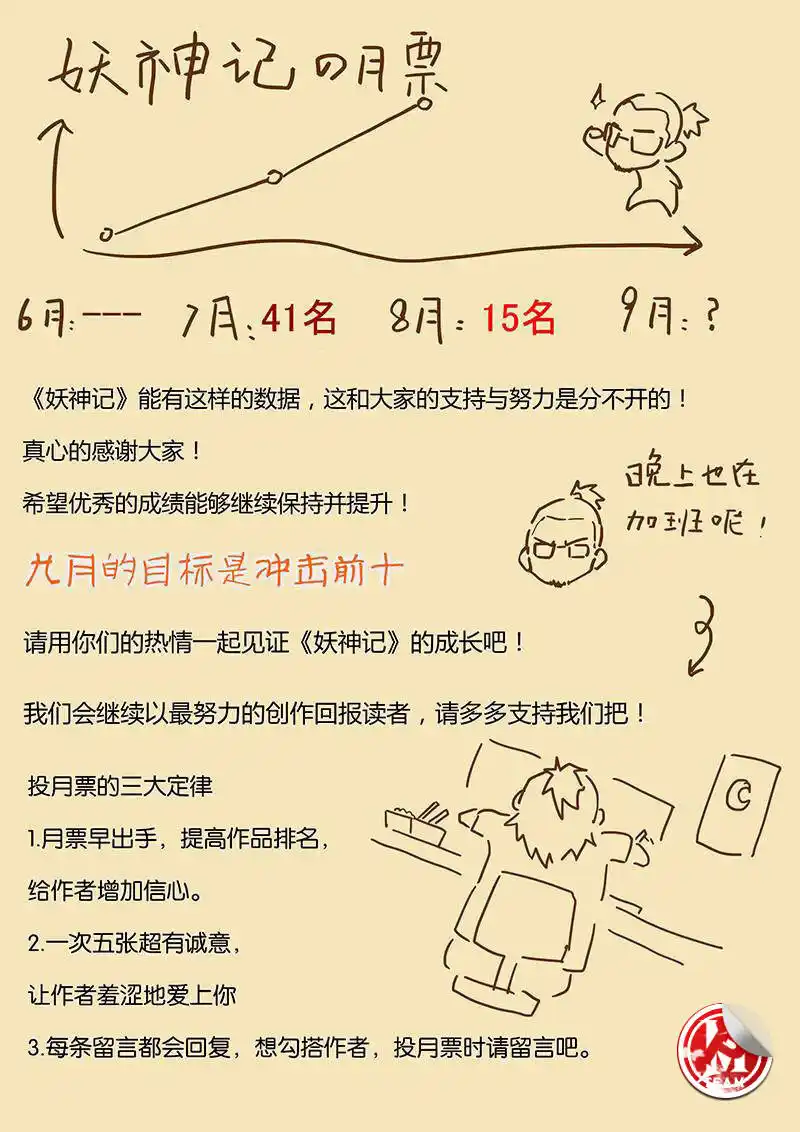 妖神记の月票
6月:--- 7月:41名 8月:15名 9月:?
《妖神记》能有这样的数据，这和大家的支持与努力是分不开的！
真心的感谢大家！
希望优秀的成绩能够继续保持并提升！
晚上也在
加班呢！
九月的目标是冲击前十
请用你们的热情一起见证《妖神记》的成长吧！
我们会继续以最努力的创作回报读者，请多多支持我们把！
投月票的三大定律
1.月票早出手，提高作品排名，
给作者增加信心。
2.一次五张超有诚意，
让作者羞涩地爱上你
3.每条留言都会回复，想勾搭作者，投月票时请留言吧。
TEAM